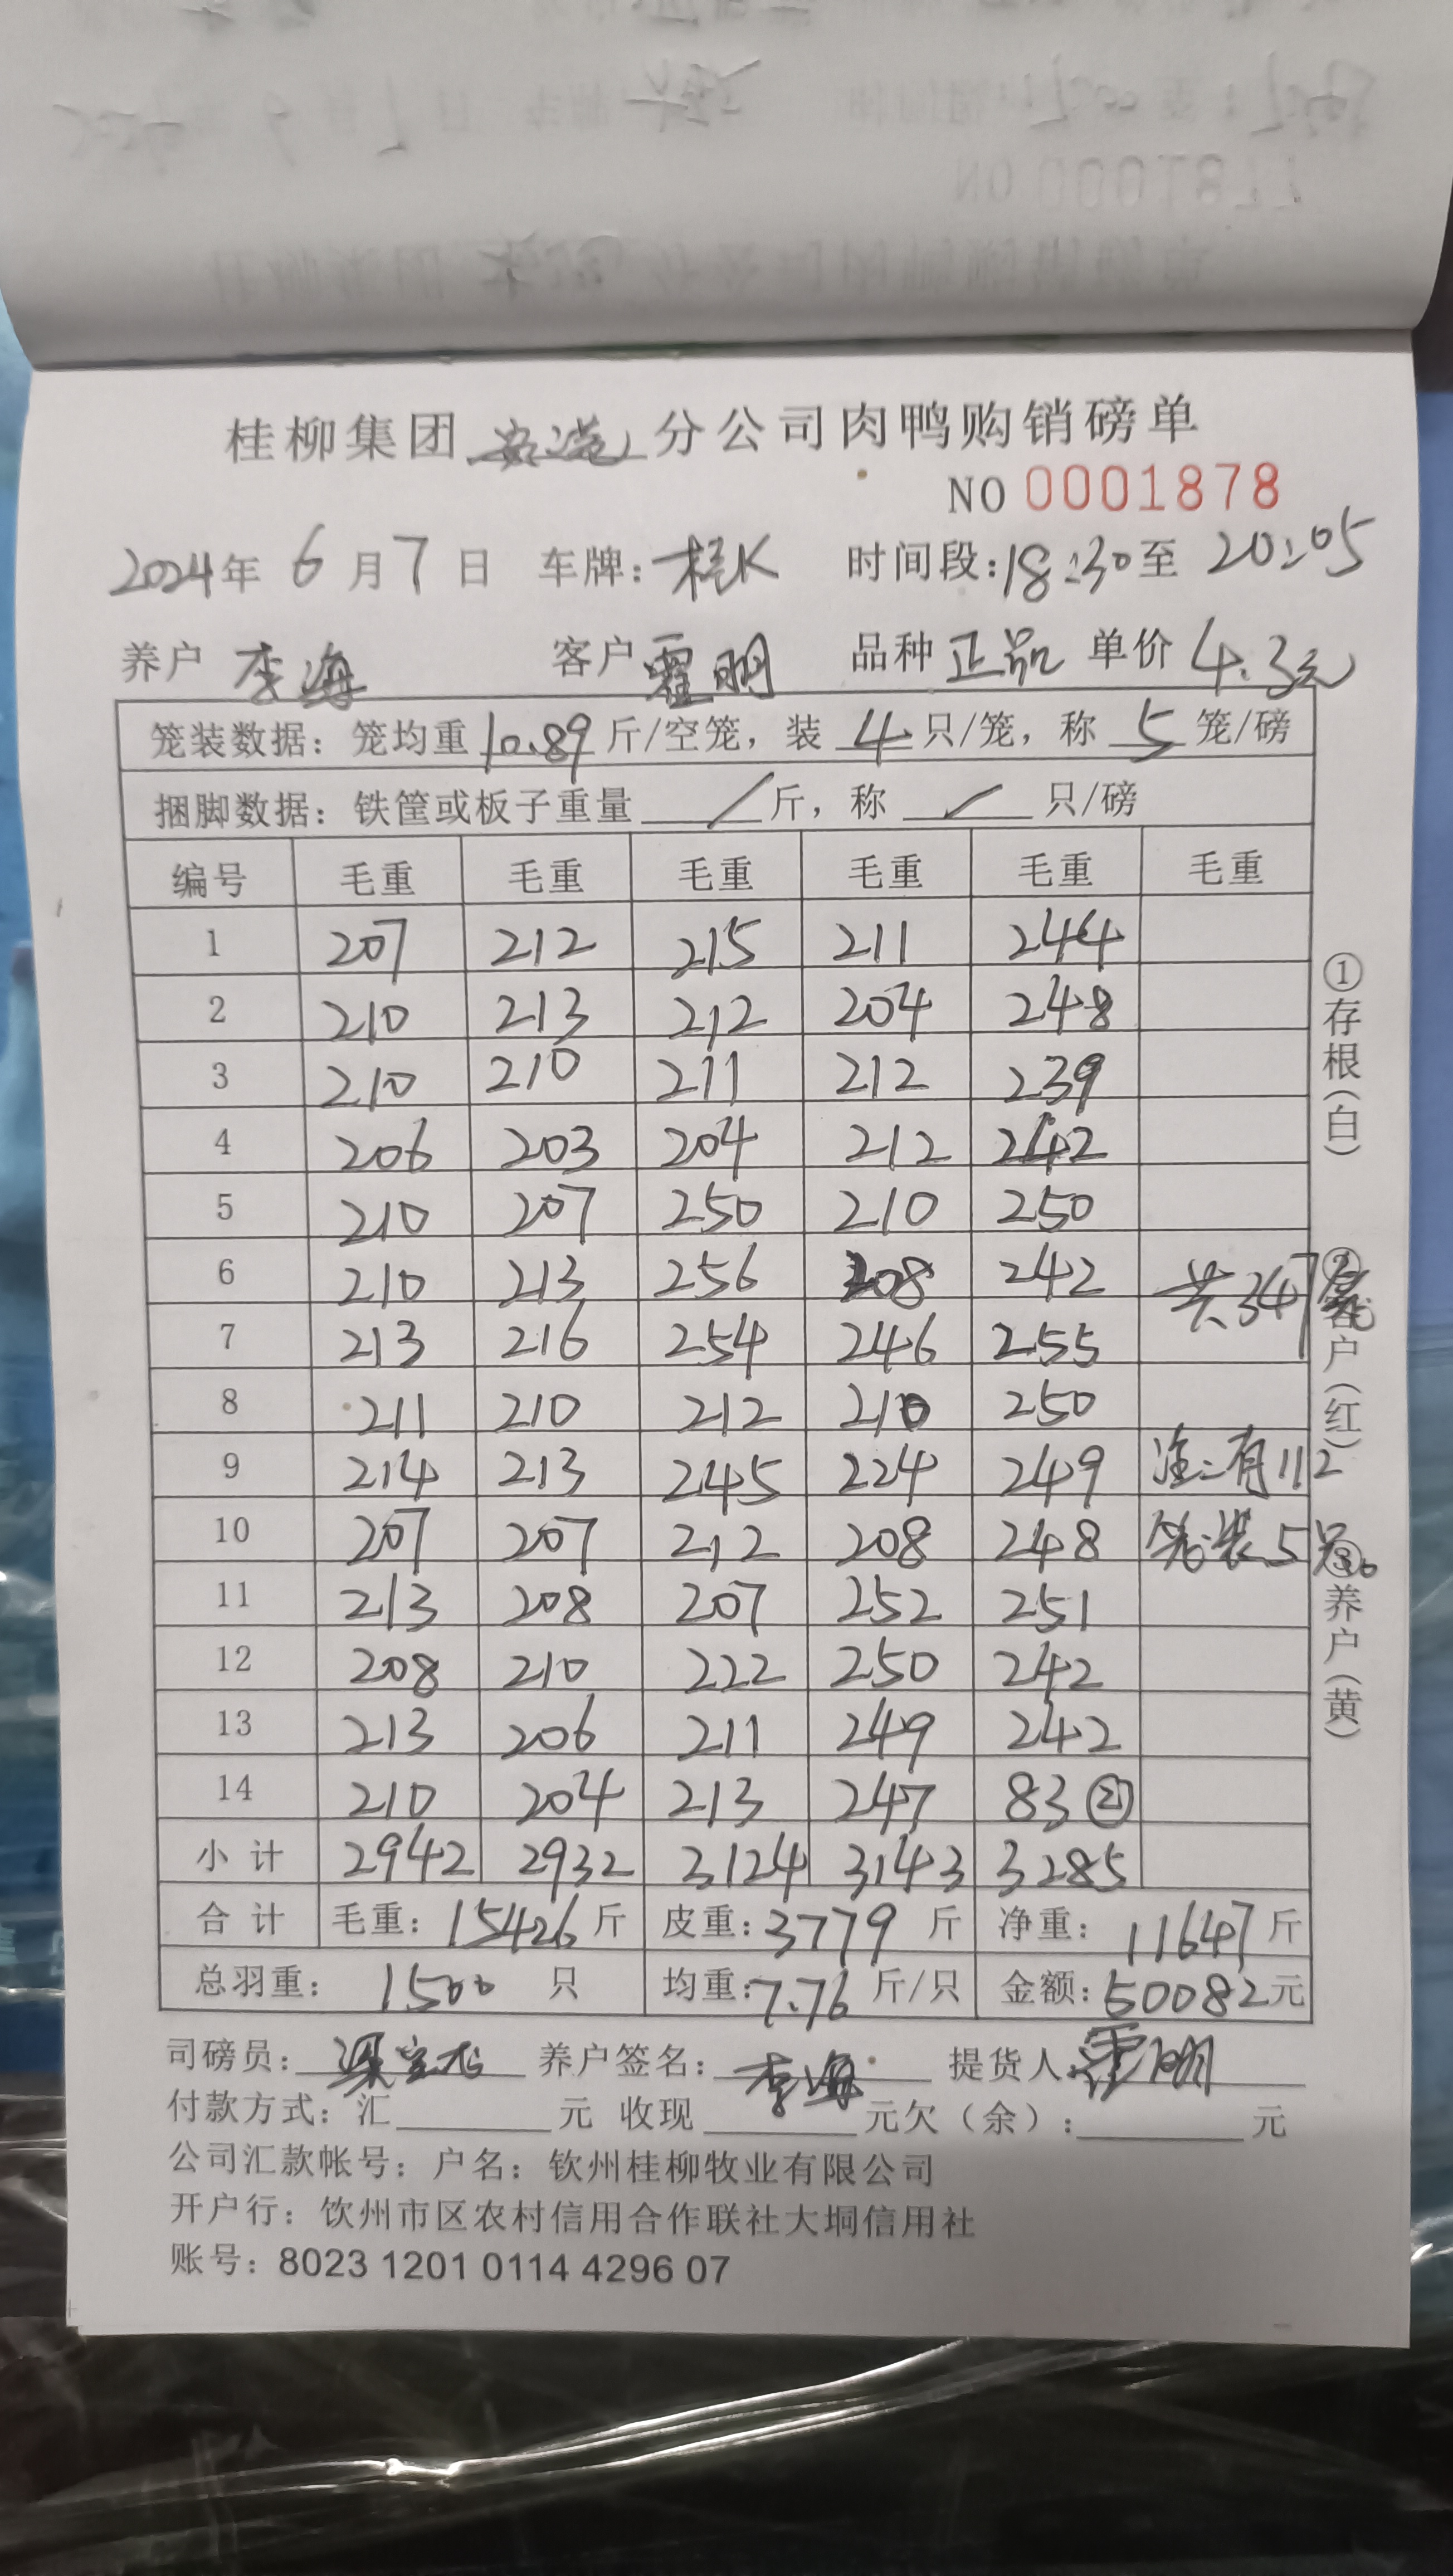 桂柳集团 分公司肉鸭购销磅单
NO 0001878
2024年 6月7日 车牌:桂K 时间段:18:30至 20:05
养户 李海 客户 霍明 品种 正品 单价 4.3元
笼装数据: 笼均重 10.89 斤/空笼, 装 4 只/笼, 称 5 笼/磅
捆脚数据: 铁筐或板子重量 / 斤, 称 / 只/磅
编号 毛重 毛重 毛重 毛重 毛重 毛重
1 207 212 215 211 244
2 210 213 212 204 248
3 210 210 211 212 239
4 206 203 204 212 242
5 210 207 250 210 250
6 210 213 256 208 242 共347笼
7 213 216 254 246 255
8 211 210 212 210 250
9 214 213 245 224 249 注:有112
10 207 207 212 208 248 笼装5只。
11 213 208 207 252 251
12 208 210 222 250 242
13 213 206 211 249 242
14 210 204 213 247 83②
小计 2942 2932 3124 3143 3285
合计 毛重: 15426 斤 皮重: 3779 斤 净重: 11647 斤
总羽重: 1500 只 均重: 7.76 斤/只 金额: 50082元
司磅员: 养户签名: 李海 提货人 霍明
付款方式: 汇 元 收现 元欠(余): 元
公司汇款帐号: 户名: 钦州桂柳牧业有限公司
开户行: 钦州市区农村信用合作联社大垌信用社
账号: 8023 1201 0114 4296 07
①存根(白)
②客户(红)
③养户(黄)